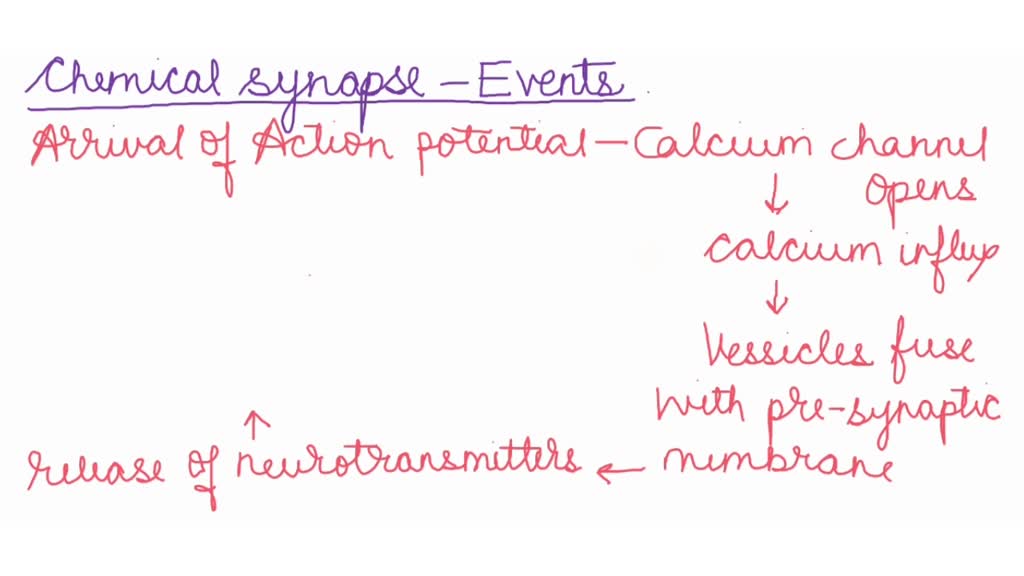 Chemical synapse - Events
Arrival of Action potential - Calcium channel
opens
↓
calcium influx
↓
Vessicles fuse
with pre-synaptic
↑
release of neurotransmitters ← membrane